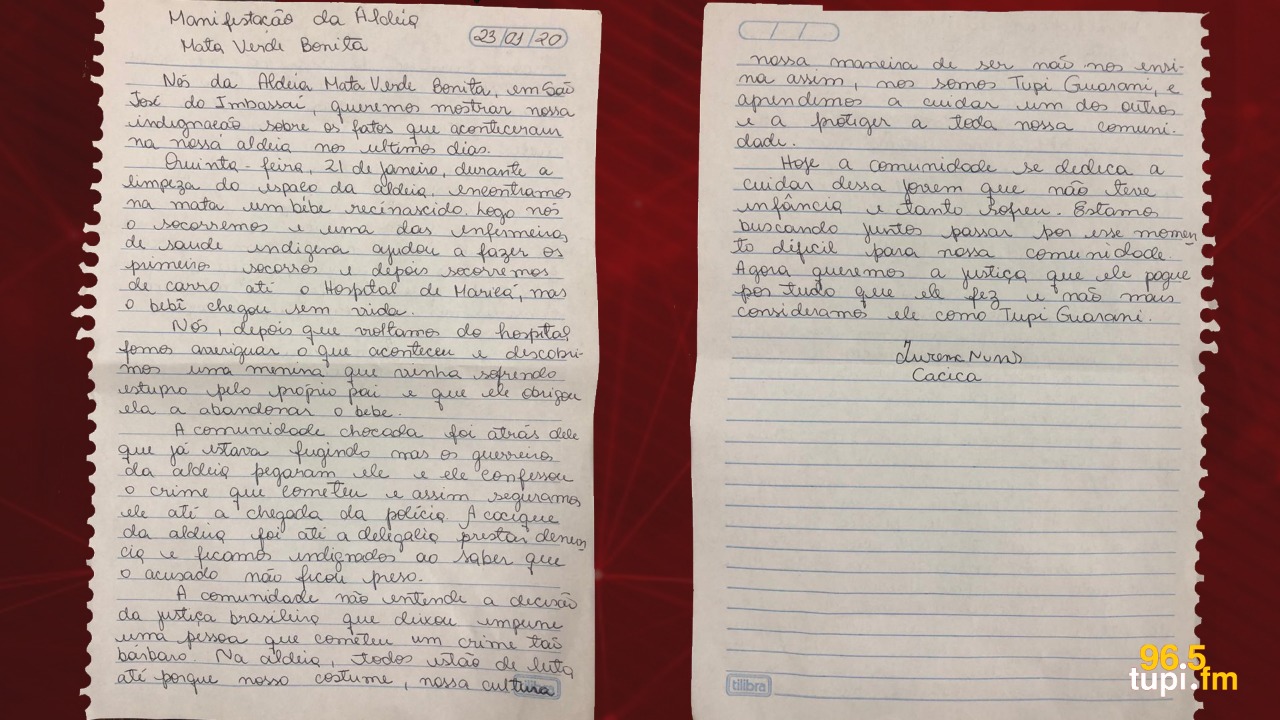 Manifestação da Aldeia
Mata Verde Bonita
23/01/20
Nós da Aldeia Mata Verde Bonita, em São
José do Imbassaí, queremos mostrar nossa
indignação sobre os fatos que aconticeram
na nossa aldeia nos ultimos dias.
Quinta-feira, 21 de Janeiro, durante a
limpeza do espaco da aldeia, encontramos
na mata um bêbe recinascido. Logo nós
o socorremos e uma das enfermeiras
de saude indigena ajudou a fazer os
primeiro socorros e depois socorremos
de carro até o Hospital de Maricá, mas
o bebê chegou sem vida.
Nós, depois que voltamos do hospital
fomos averiguar o que aconteceu e descobri-
mos uma menina que vinha sofrendo
estupro pelo próprio pai e que ele obrigou
ela a abandonar o bebe.
A comunidade chocada foi atrás dele
que já estava fugindo mas os guerreiros
da aldeia pegaram ele e ele confessou
o crime que cometeu e assim seguramos
ele até a chegada da polícia A cacique
da aldeia foi até a delegalia prestar denun
cia e ficamos indignados ao saber que
o acusado não ficou preso.
A comunidade não entende a decisão
da justiça brasileira que deixou impune
uma pessoa que cometeu um crime taõ
bárbaro. Na aldeia, todos estão de luta
até porque nosso costume, nossa cultura
tilibra
nossa maneira de ser não nos ensi-
na assim, nos somos Tupi Guarani, e
aprendemos a cuidar um dos outros
e a protiger a toda nossa comuni-
dade.
Hoje a comunidade se dedeca a
cuidar dessa jovem que não teve
infância e tanto sofreu. Estamos
buscando juntos passar por esse momen
to dificil para nossa comunidade.
Agora queremos a justiça que ele pague
por tudo que ele fez e não mais
consideramos ele como Tupi Guarani.
Nunes
Cacica
tilibra
96.5
tupi.fm